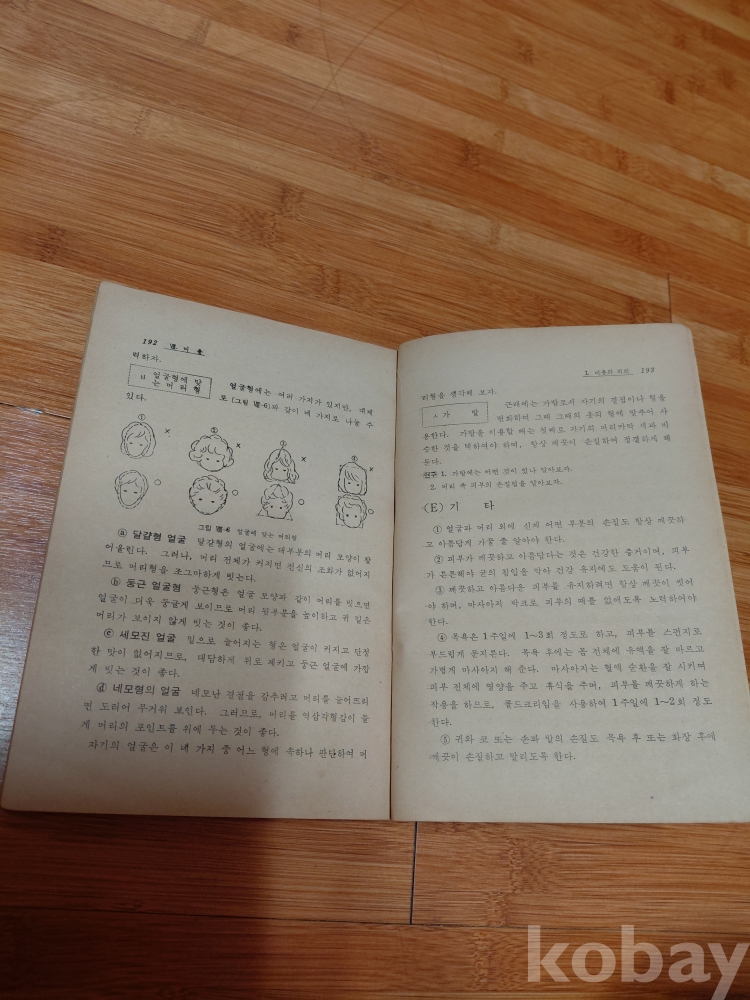 192 Ⅷ. 미 용
력하자.
ㅂ 얼굴형에 맞
는 머리형
얼굴형에는 여러 가지가 있지만, 대체
로 (그림 Ⅷ-6)과 같이 네 가지로 나눌 수
있다.
그림 Ⅷ-6 얼굴에 맞는 머리형
ⓐ 달걀형 얼굴 달걀형의 얼굴에는 대부분의 머리 모양이 잘
어울린다. 그러나, 머리 전체가 커지면 전신의 조화가 없어지
므로 머리형을 조그마하게 빗는다.
ⓑ 둥근 얼굴형 둥근형은 얼굴 모양과 같이 머리를 빗으면
얼굴이 더욱 둥글게 보이므로 머리 윗부분을 높이하고 귀 밑은
머리가 보이지 않게 빗는 것이 좋다.
ⓒ 세모진 얼굴 밑으로 늘어지는 형은 얼굴이 커지고 단정
한 맛이 없어지므로, 대담하게 위로 제키고 둥근 얼굴에 가깝
게 빗는 것이 좋다.
ⓓ 네모형의 얼굴 네모난 결점을 감추려고 머리를 늘어뜨리
면 도리어 무거워 보인다. 그러므로, 머리를 역삼각형같이 들
게 머리의 포인트를 위에 두는 것이 좋다.
자기의 얼굴은 이 네 가지 중 어느 형에 속하나 판단하여 머
1. 미용의 처리 193
리형을 생각해 보자.
ㅅ 가 발
근래에는 가발로서 자기의 결점이나 형을
변화하여 그때 그때의 옷의 형에 맞추어 사
용한다. 가발을 이용할 때는 첫째로 자기의 머리카락 색과 비
슷한 것을 택하여야 하며, 항상 깨끗이 손질하여 정결하게 해
둔다.
연구 1. 가발에는 어떤 것이 있나 알아보자.
2. 머리 속 피부의 손질법을 알아보자.
(E) 기 타
① 얼굴과 머리 외에 신체 어떤 부분의 손질도 항상 깨끗하
고 아름답게 가꿀 줄 알아야 한다.
② 피부가 깨끗하고 아름답다는 것은 건강한 증거이며, 피부
가 튼튼해야 균의 침입을 막아 건강 유지에도 도움이 된다.
③ 깨끗하고 아름다운 피부를 유지하려면 항상 깨끗이 씻어
야 하며, 마사아지 팍크로 피부의 때를 없애도록 노력하여야
한다.
④ 목욕은 1주일에 1~3회 정도로 하고, 피부를 스펀지로
부드럽게 문지른다. 목욕 후에는 몸 전체에 유액을 잘 바르고
가볍게 마사아지 해 준다. 마사아지는 혈액 순환을 잘 시키며
피부 전체에 영양을 주고 휴식을 주며, 피부를 깨끗하게 하는
작용을 하므로, 콜드크리임을 사용하여 1주일에 1~2회 정도
한다.
⑤ 귀와 코 또는 손과 발의 손질도 목욕 후 또는 화장 후에
깨끗이 손질하고 말리도록 한다.
kobay